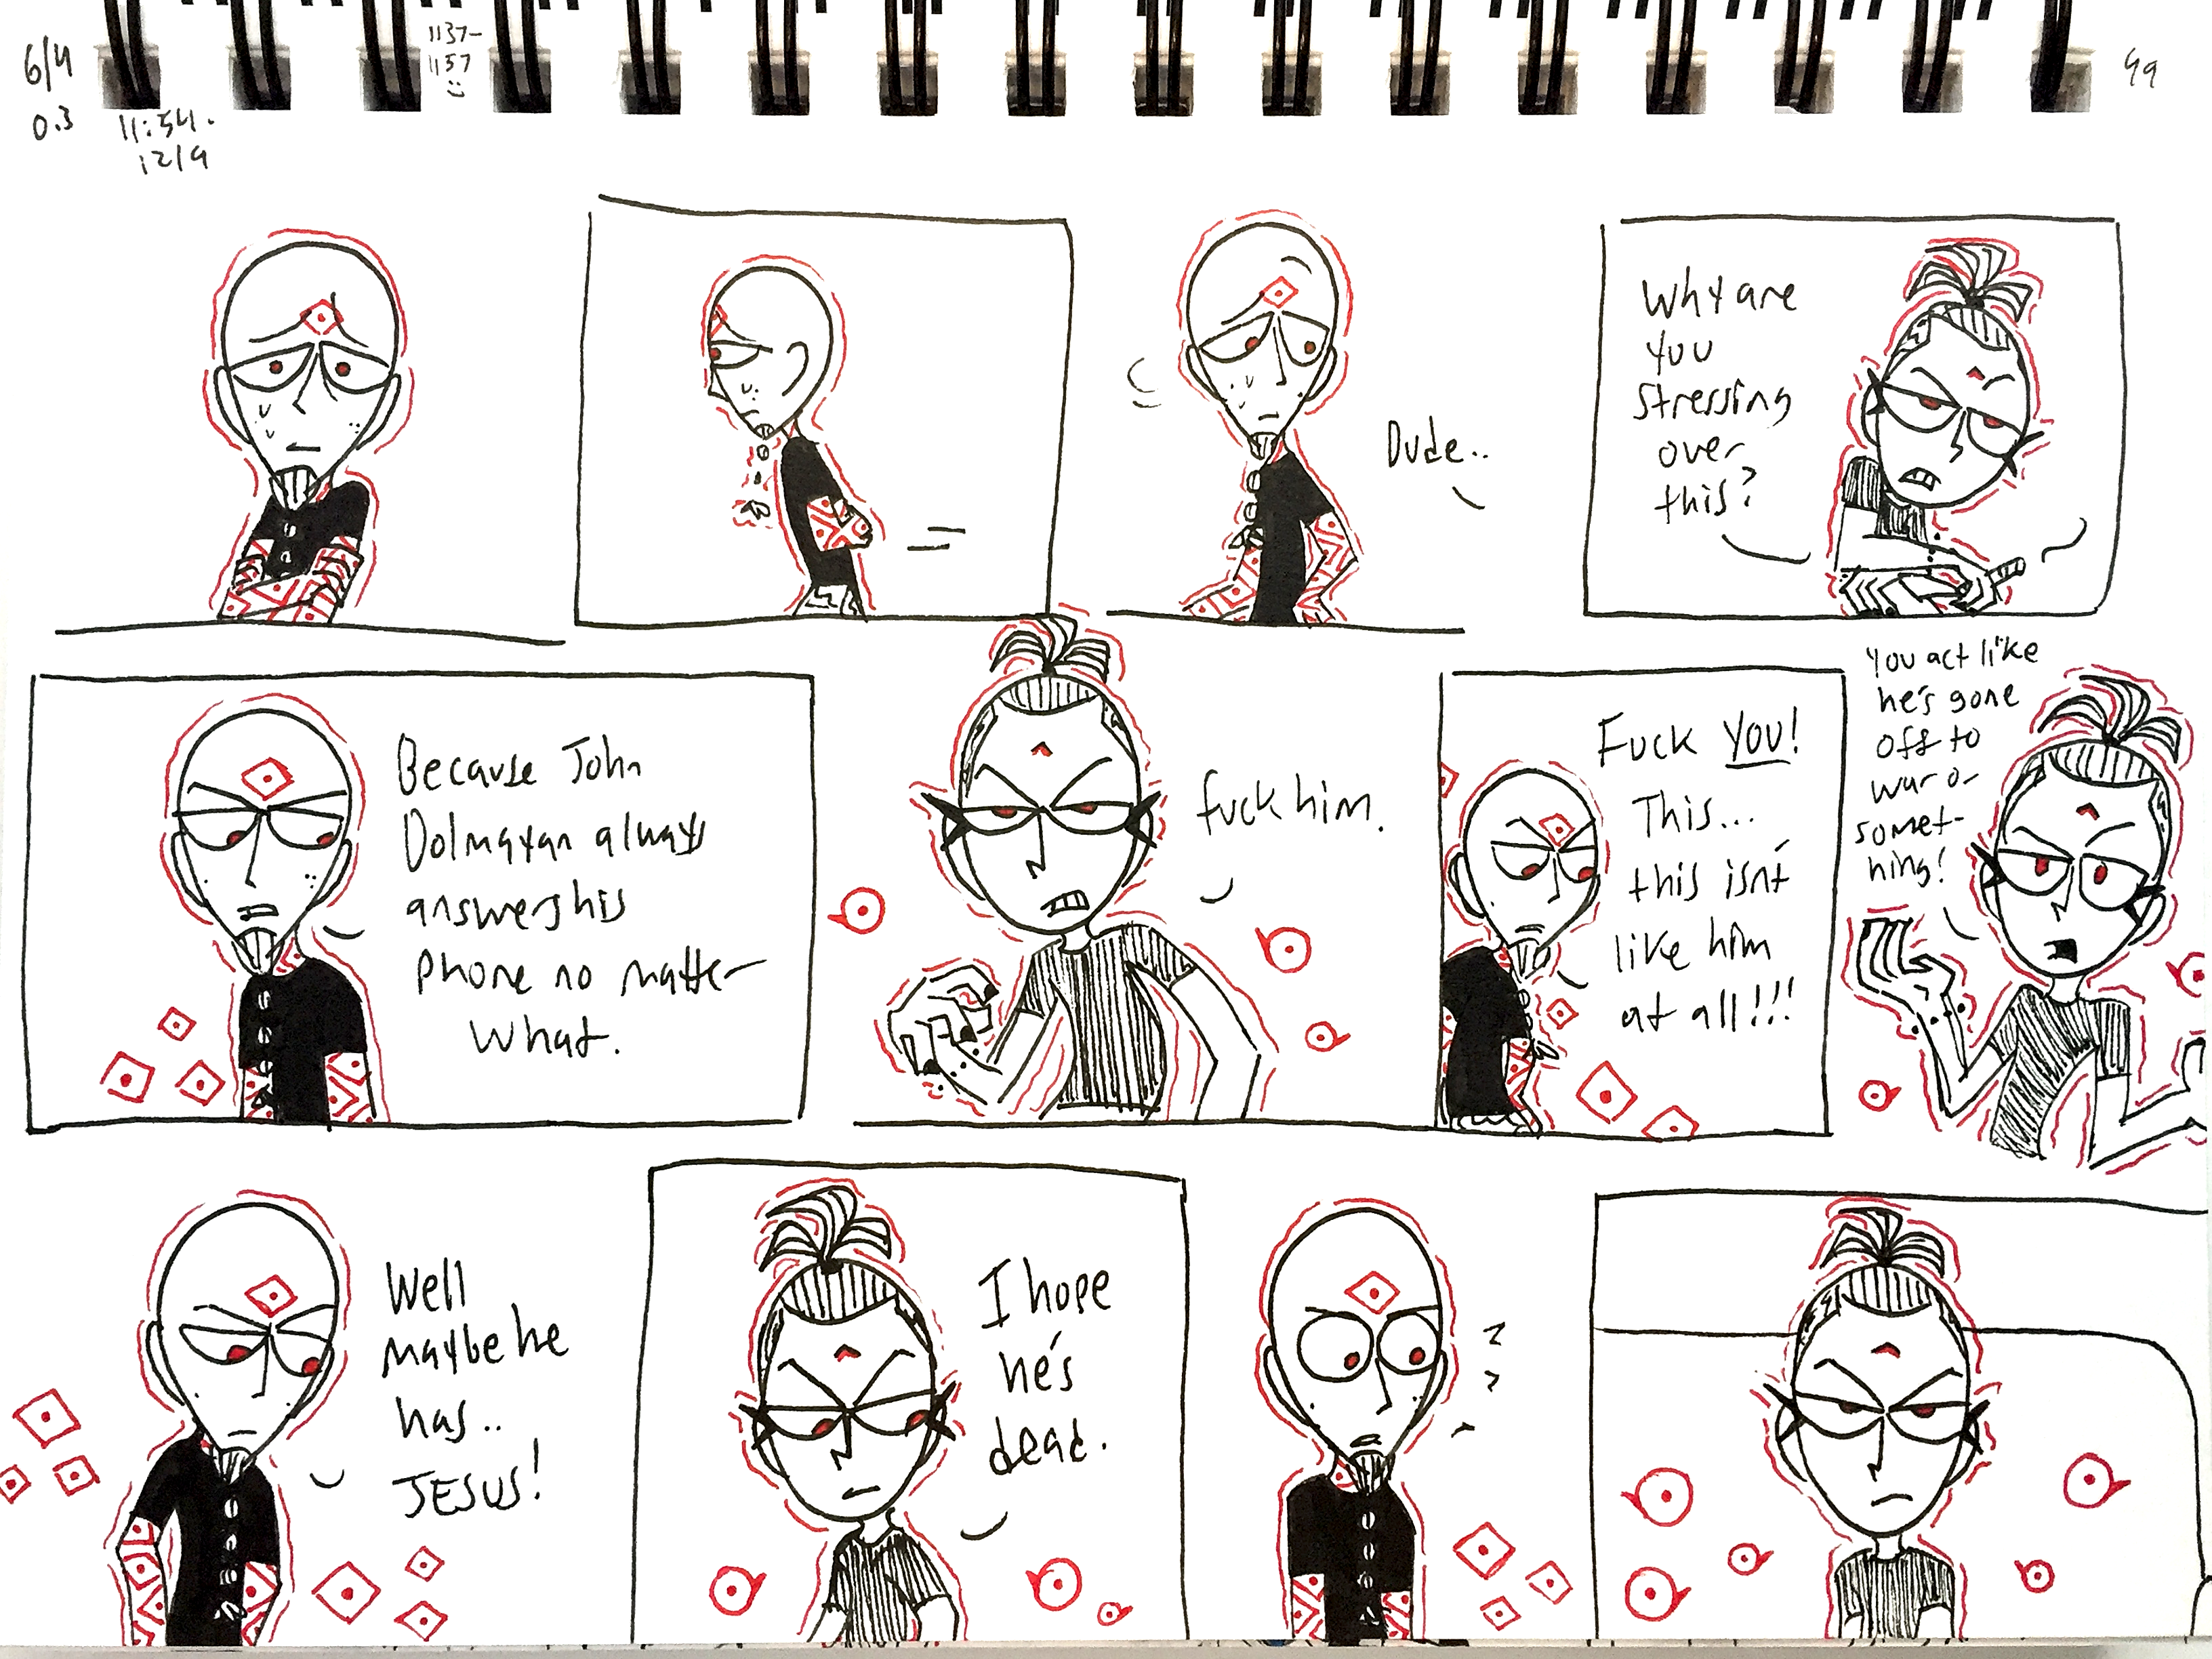 6/4
0.3
11:54.
12/9
1137-
1157
:)
49
Dude..
Why are
you
stressing
over
this?
Because John
Dolmayan always
answers his
phone no matter
what.
fuck him.
Fuck YOU!
This...
this isn't
like him
at all!!!
You act like
he's gone
off to
war or
somet-
hing!
Well
maybe he
has..
JESUS!
I hope
he's
dead.